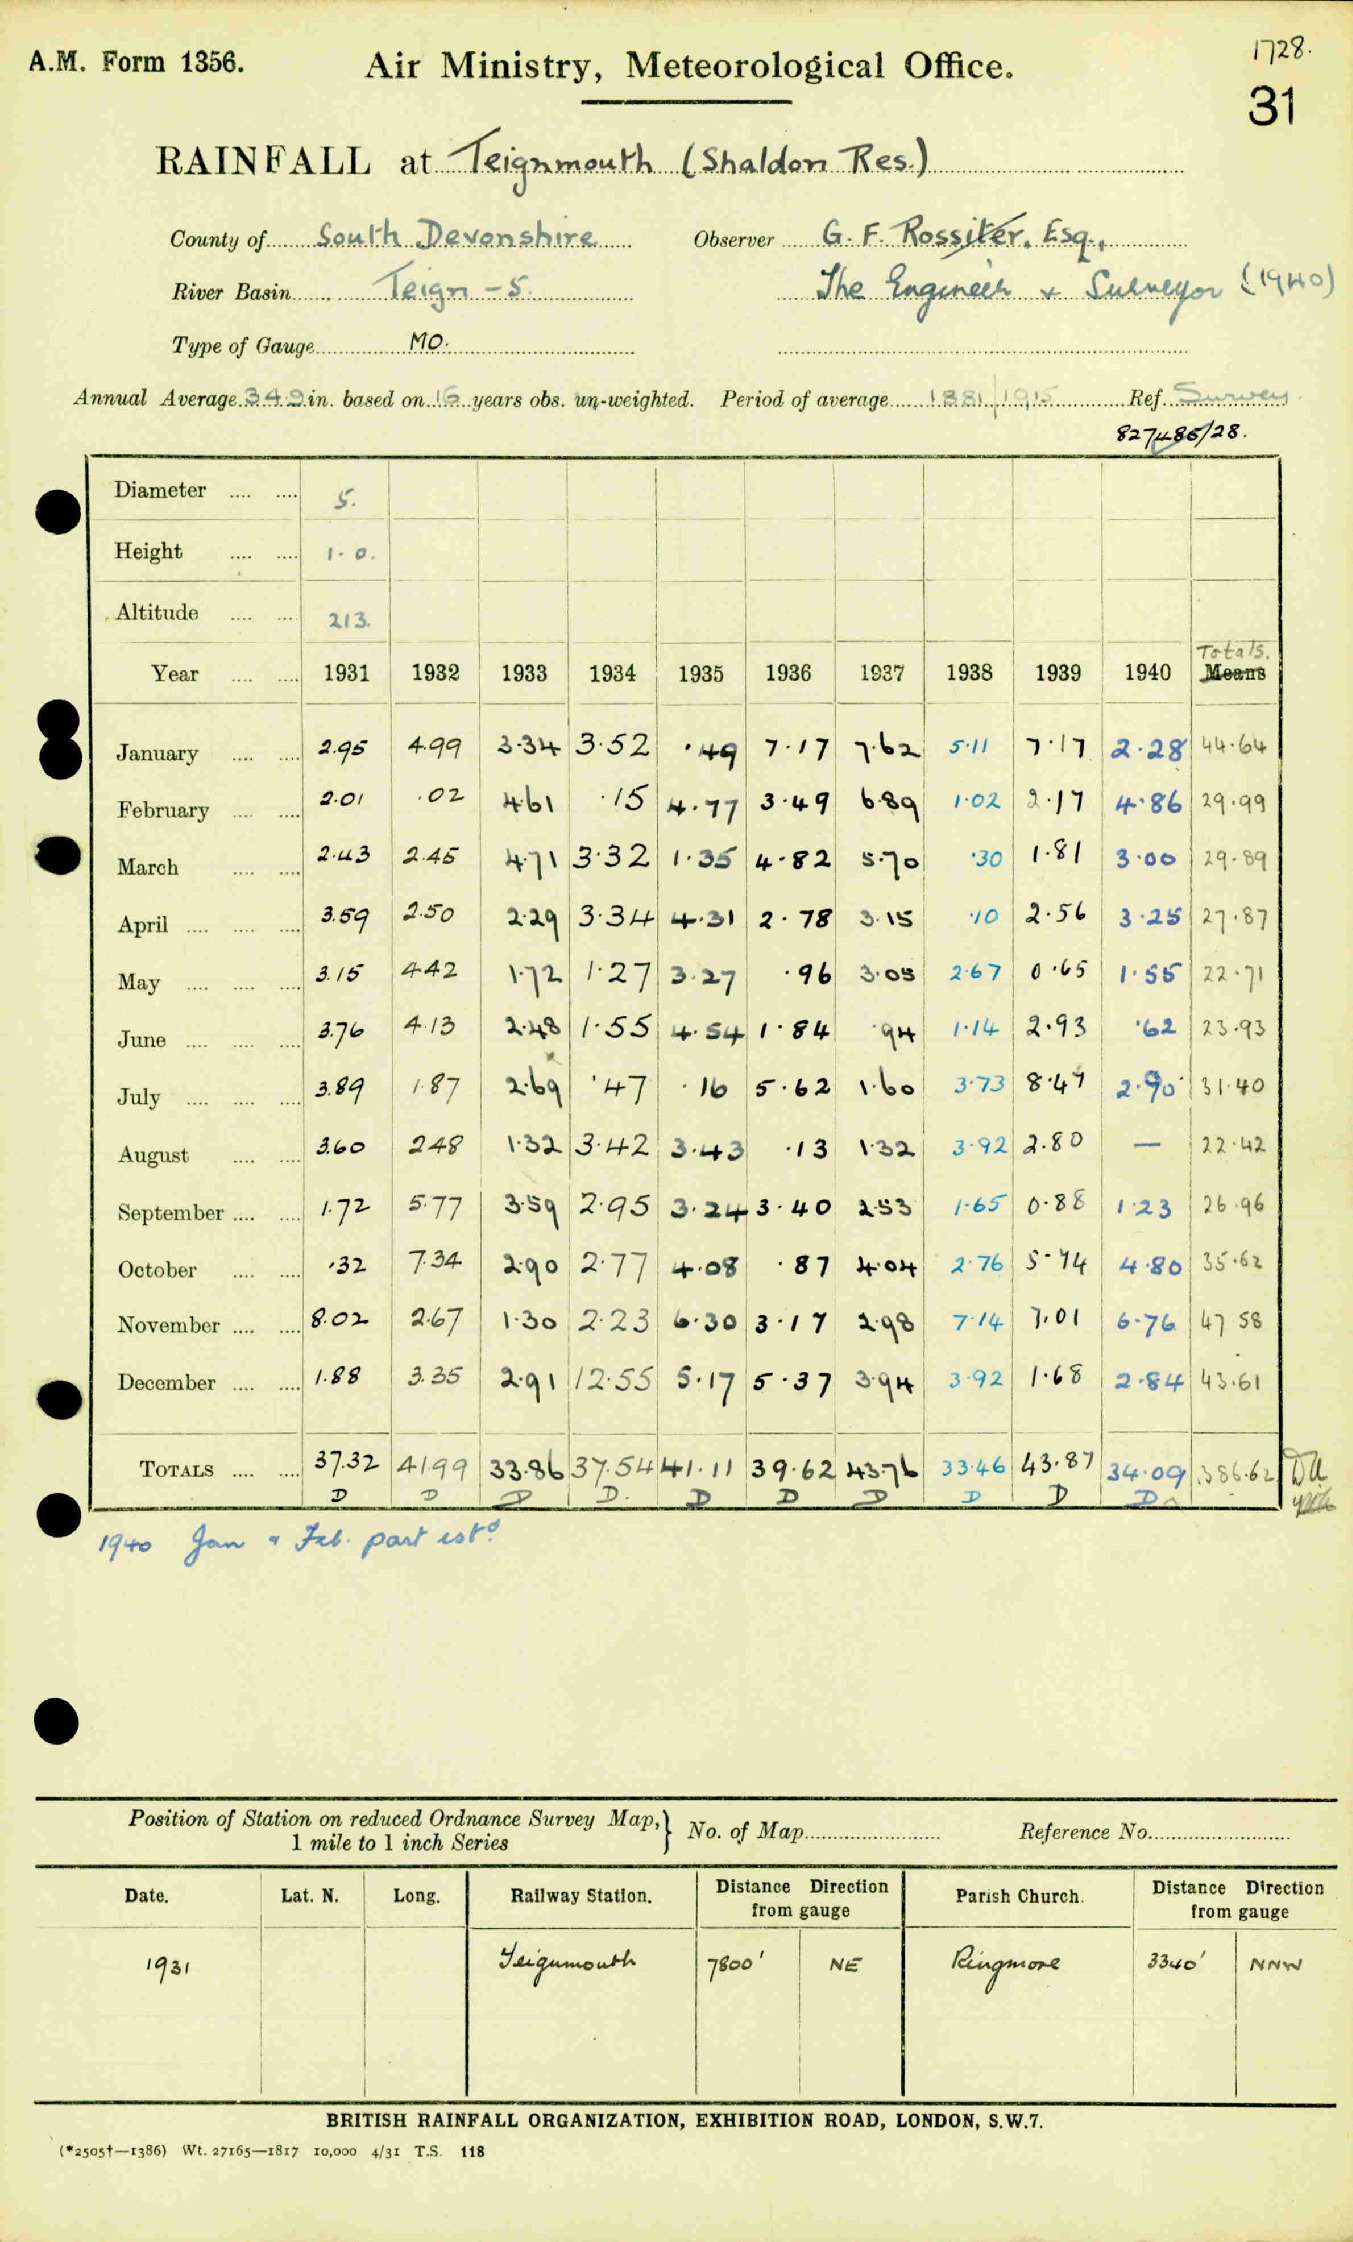 1728.
A.M. Form 1356. Air Ministry, Meteorological Office.
31
RAINFALL at Teignmouth (Shaldon Res.)
County of South Devonshire Observer G. F. Rossiter, Esq.,
River Basin Teign - 5. The Engineer & Surveyor (1940)
Type of Gauge MO.
Annual Average 34.9 in. based on 16 years obs. un-weighted. Period of average 1881/1915 Ref. Survey
827485/28.
Diameter .... .... 5.
Height .... .... 1-0.
Altitude .... .... 213.
Totals.
Year .... .... 1931 1932 1933 1934 1935 1936 1937 1938 1939 1940 Means
January .... .... 2.95 4.99 3.34 3.52 .49 7.17 7.62 5.11 7.17 2.28 44.64
February .... .... 2.01 .02 4.61 .15 4.77 3.49 6.89 1.02 2.17 4.86 29.99
March .... .... 2.43 2.45 4.71 3.32 1.35 4.82 5.70 .30 1.81 3.00 29.89
April .... .... .... 3.59 2.50 2.29 3.34 4.31 2.78 3.15 .10 2.56 3.25 27.87
May .... .... .... 3.15 4.42 1.72 1.27 3.27 .96 3.05 2.67 0.65 1.55 22.71
June .... .... .... 3.76 4.13 2.48 1.55 4.54 1.84 .94 1.14 2.93 .62 23.93
July .... .... .... 3.89 1.87 2.69 .47 .16 5.62 1.60 3.73 8.47 2.90 31.40
August .... .... 3.60 2.48 1.32 3.42 3.43 .13 1.32 3.92 2.80 — 22.42
September .... .... 1.72 5.77 3.59 2.95 3.24 3.40 2.53 1.65 0.88 1.23 26.96
October .... .... .32 7.34 2.90 2.77 4.08 .87 4.04 2.76 5.74 4.80 35.62
November .... .... 8.02 2.67 1.30 2.23 6.30 3.17 2.98 7.14 7.01 6.76 47.58
December .... .... 1.88 3.35 2.91 12.55 5.17 5.37 3.94 3.92 1.68 2.84 43.61
TOTALS .... .... 37.32 41.99 33.86 37.54 41.11 39.62 43.76 33.46 43.87 34.09 386.62
D D D D. D D D D D D
1940 Jan & Feb. part estd.
Position of Station on reduced Ordnance Survey Map, } No. of Map Reference No.
1 mile to 1 inch Series
Date. Lat. N. Long. Railway Station. Distance Direction from gauge Parish Church. Distance Direction from gauge
1931 Teignmouth 7800' NE Ringmore 3340' NNW
BRITISH RAINFALL ORGANIZATION, EXHIBITION ROAD, LONDON, S.W.7.
(*2505†—1386) Wt. 27165—1817 10,000 4/31 T.S. 118